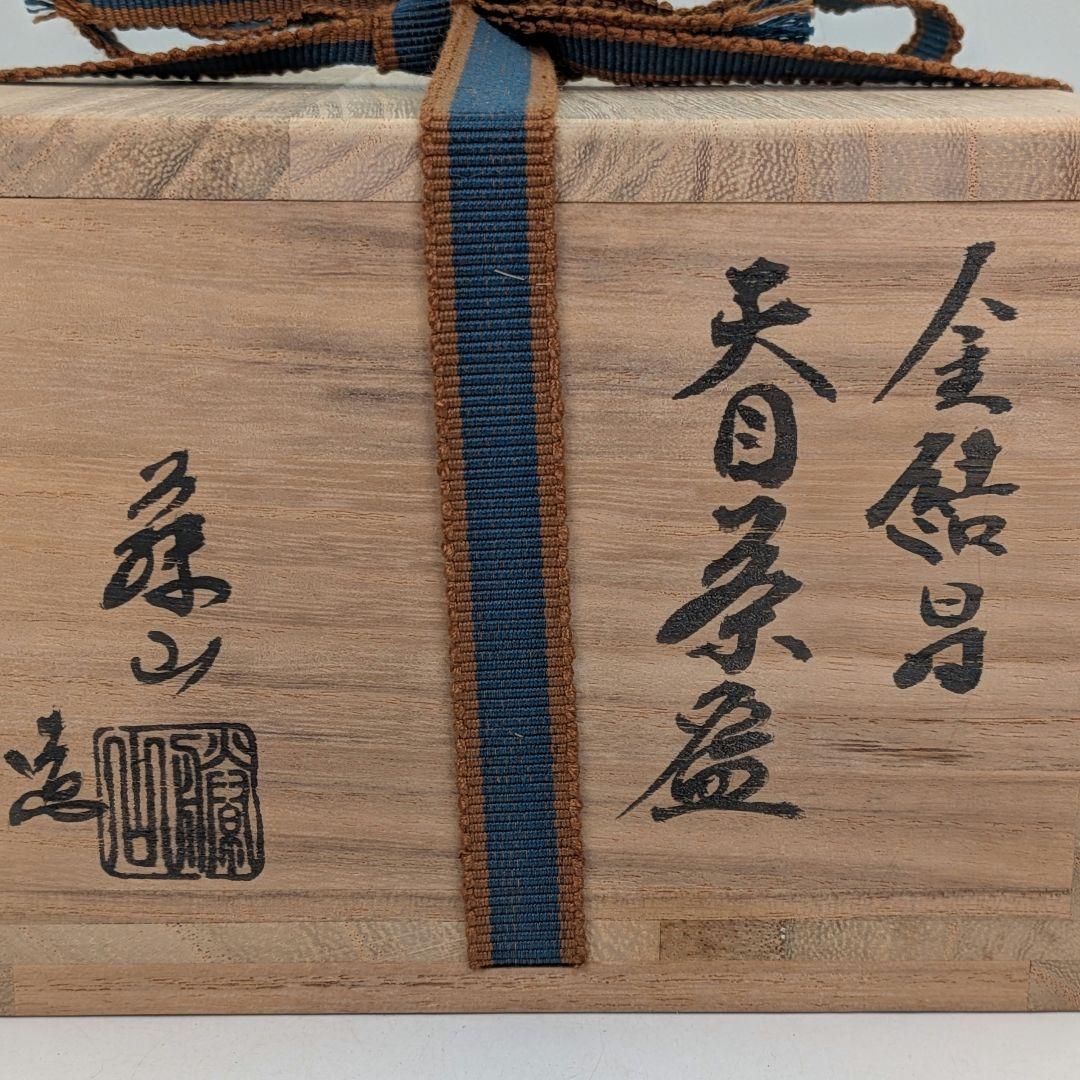 金結晶
天目茶盌
山
造